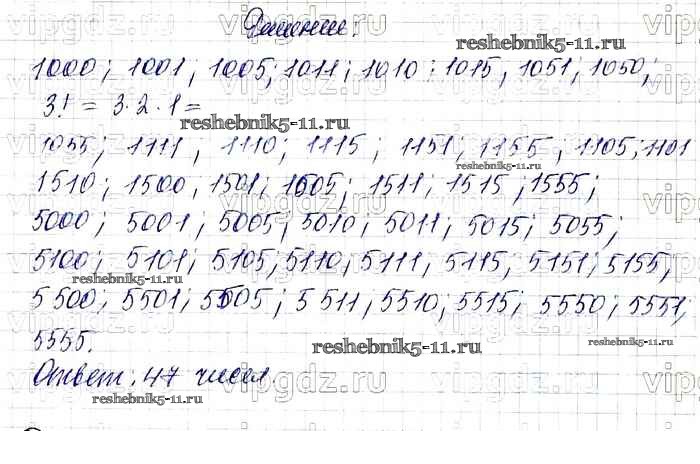 Решение.
reshebnik5-11.ru
1000; 1001; 1005; 1011; 1010; 1015; 1051; 1050;
3! = 3·2·1=
reshebnik5-11.ru
1055; 1111; 1110; 1115; 1151; 1155; 1105; 1101
reshebnik5-11.ru
1510; 1500; 1501; 1505; 1511; 1515; 1555;
5000; 5001; 5005; 5010; 5011; 5015; 5055;
5100; 5101; 5105; 5110; 5111; 5115; 5151; 5155,
reshebnik5-11.ru
5500; 5501; 5505; 5511; 5510; 5515; 5550; 5551,
5555.
reshebnik5-11.ru
Ответ: 47 чисел.
reshebnik5-11.ru
vipgdz.ru